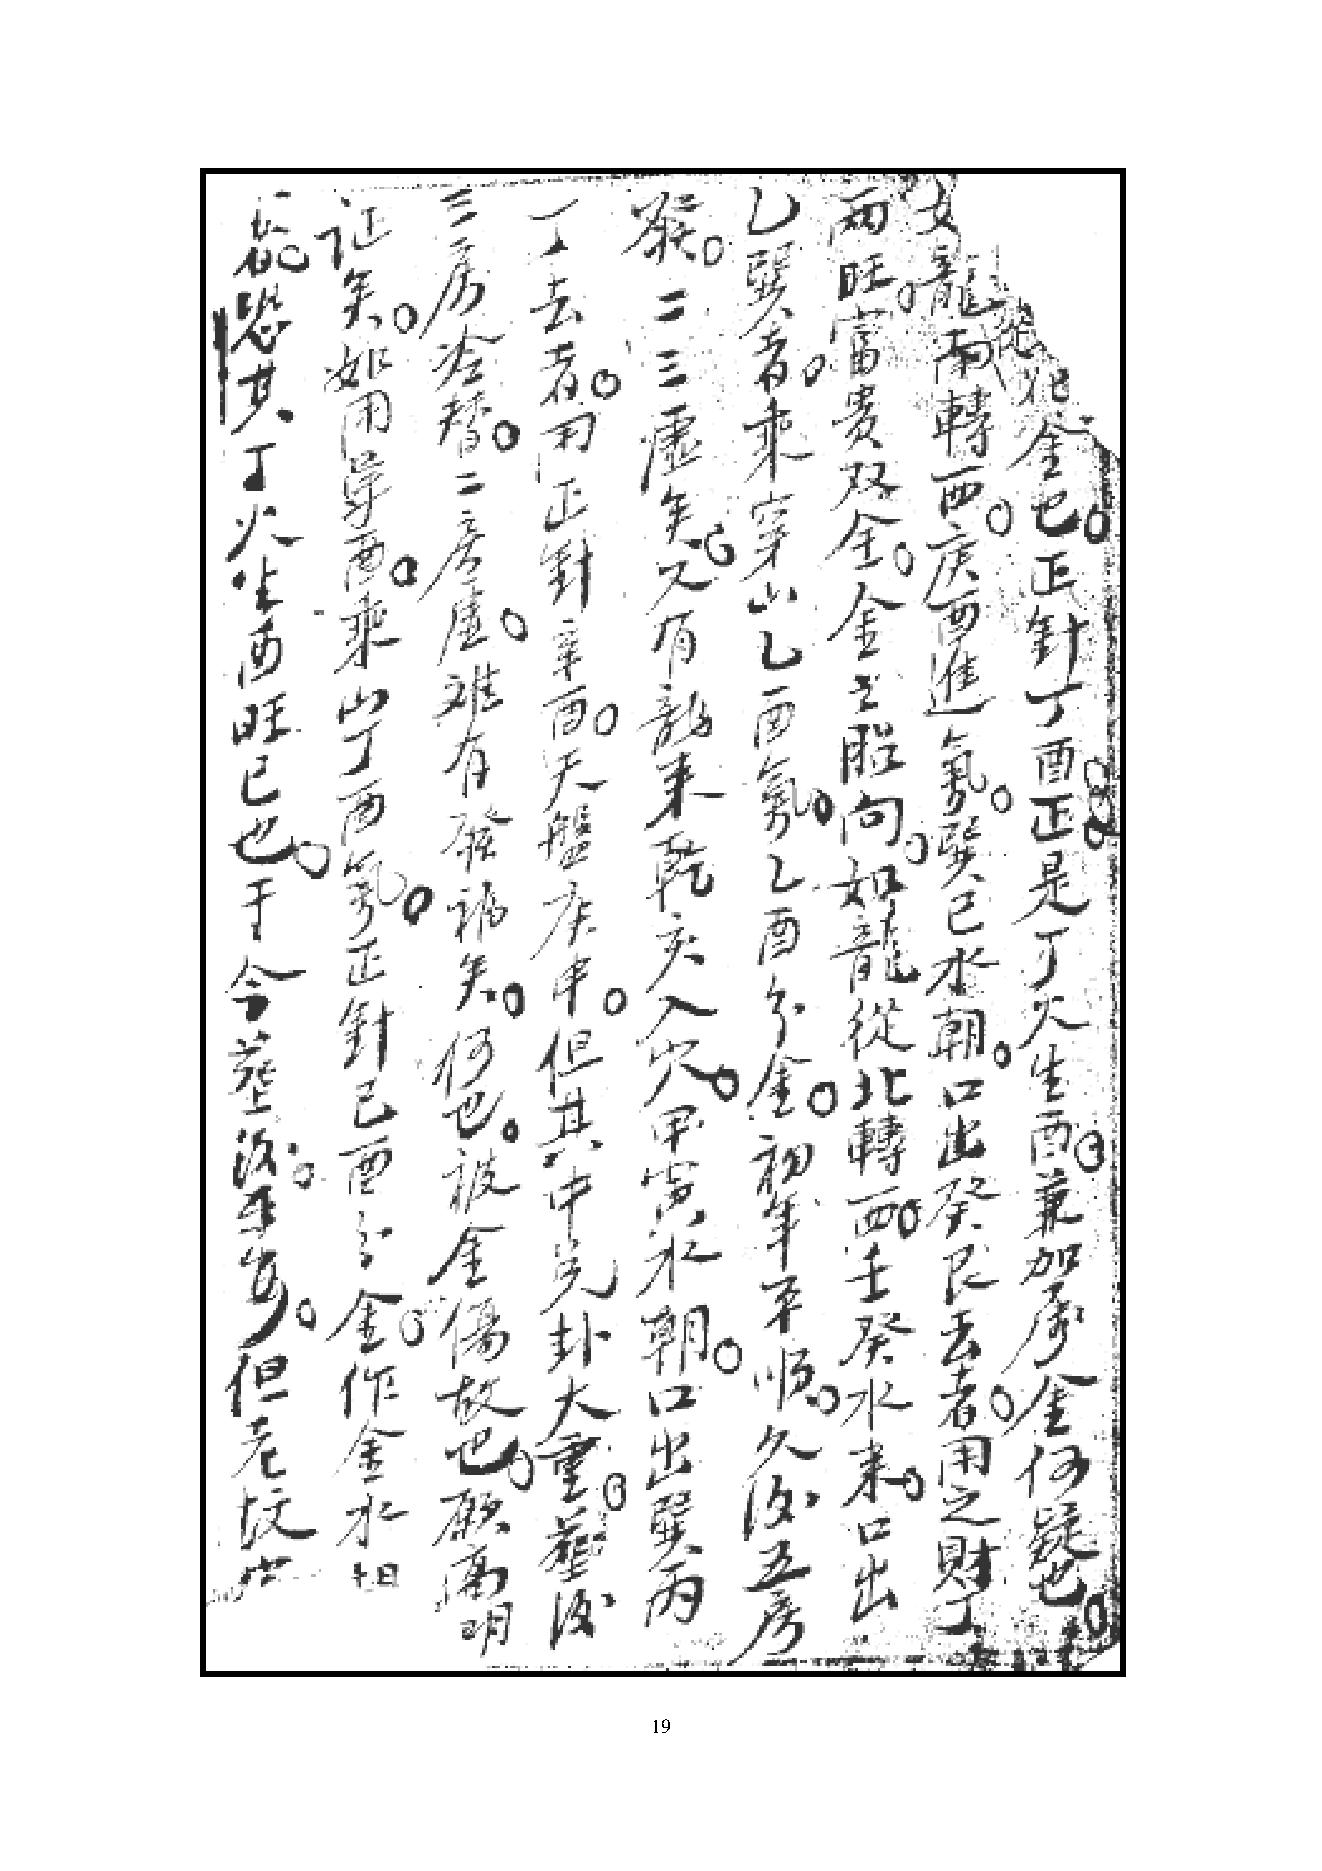 金也。正針丁酉正是丁火生酉。兼加庚金何疑也。
龍南轉西。庚酉進氣。巽巳水朝。口出癸艮去者。用之財丁
兩旺。富貴双全。金土昭向。如龍從北轉西。壬癸水來。口出
乙巽者。乘穿山乙酉氣。乙酉分金。初年平順。久后五房
發。二三虛矣。又有龍來乾亥入穴。甲寅水朝。口出巽丙
丁去者。用正針辛酉。天盤庚申。但其中兌卦大重。葬後
三房冷替。二房虛。难有發福矣。何也。被金傷故也。願高明
証矣。如用單酉。乘山丁酉氣。正針己酉分金。作金水相
恐其丁火生酉旺巳也。于今葬後平安。但老坟
19